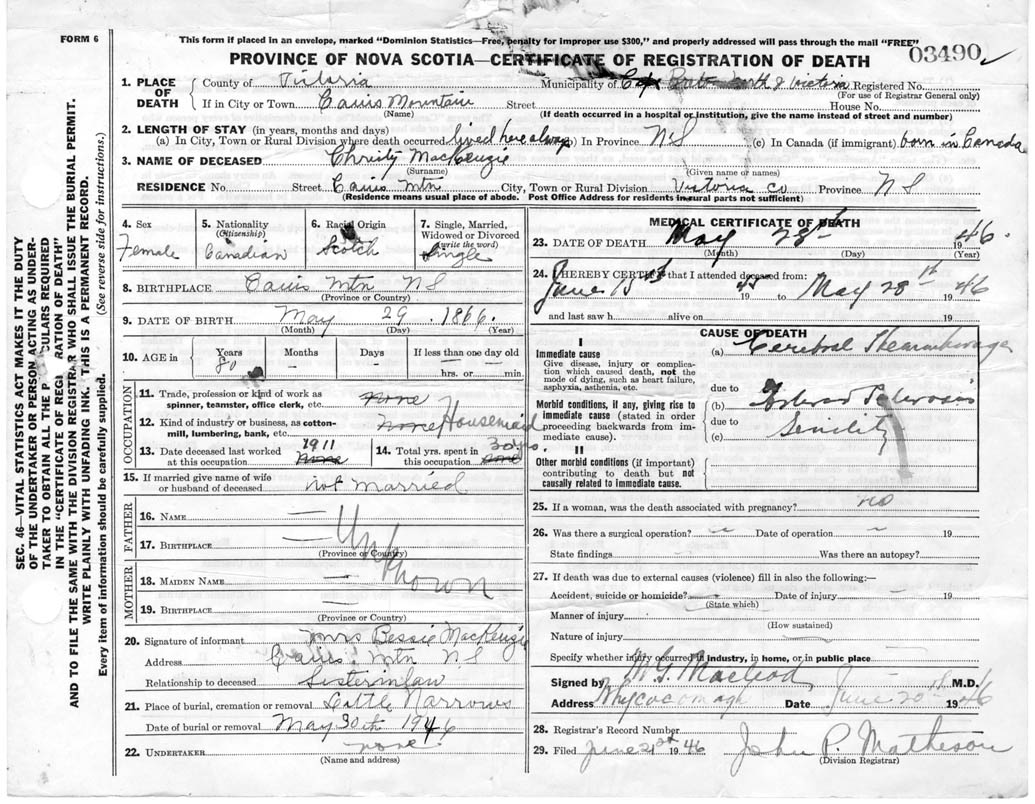 FORM 6
This form if placed in an envelope, marked "Dominion Statistics—Free, penalty for improper use $300," and properly addressed will pass through the mail "FREE"
PROVINCE OF NOVA SCOTIA—CERTIFICATE OF REGISTRATION OF DEATH
03490
1. PLACE OF DEATH
County of Victoria Municipality of Registered No.
(For use of Registrar General only)
If in City or Town Cains Mountain Street House No.
(Name) (If death occurred in a hospital or institution, give the name instead of street and number)
2. LENGTH OF STAY (in years, months and days)
(a) In City, Town or Rural Division where death occurred lived here always (b) In Province NS (c) In Canada (if immigrant) born in Canada
3. NAME OF DECEASED Christy MacKenzie
(Surname) (Given name or names)
RESIDENCE No. Street Cains Mtn City, Town or Rural Division Victoria Co Province NS
(Residence means usual place of abode. Post Office Address for residents in rural parts not sufficient)
4. Sex Female
5. Nationality (Citizenship) Canadian
6. Racial Origin Scotch
7. Single, Married, Widowed or Divorced (write the word) Single
8. BIRTHPLACE Cains Mtn NS
(Province or Country)
9. DATE OF BIRTH May 29 1866
(Month) (Day) (Year)
10. AGE in Years Months Days If less than one day old
80 – – hrs. or min.
OCCUPATION
11. Trade, profession or kind of work as spinner, teamster, office clerk, etc. none
12. Kind of industry or business, as cotton-mill, lumbering, bank, etc. none Housemaid
13. Date deceased last worked at this occupation 1911 None
14. Total yrs. spent in this occupation 30 yrs.
15. If married give name of wife or husband of deceased not married
FATHER
16. NAME —
17. BIRTHPLACE —
(Province or Country)
Unknown
MOTHER
18. MAIDEN NAME —
19. BIRTHPLACE —
(Province or Country)
20. Signature of informant Mrs Bessie MacKenzie
Address Cains Mtn NS
Relationship to deceased Sisterinlaw
21. Place of burial, cremation or removal Little Narrows
Date of burial or removal May 30th 1946
22. UNDERTAKER none
(Name and address)
MEDICAL CERTIFICATE OF DEATH
23. DATE OF DEATH May 28th 1946.
(Month) (Day) (Year)
24. I HEREBY CERTIFY that I attended deceased from:
June 15th 1945 to May 28th 1946
and last saw h alive on 19
CAUSE OF DEATH
I
Immediate cause
Give disease, injury or complication which caused death, not the mode of dying, such as heart failure, asphyxia, asthenia, etc.
(a) Cerebral
due to
Morbid conditions, if any, giving rise to immediate cause (stated in order proceeding backwards from immediate cause).
(b)
due to
(c) Senility
II
Other morbid conditions (if important) contributing to death but not causally related to immediate cause.
25. If a woman, was the death associated with pregnancy? no
26. Was there a surgical operation? – Date of operation – 19
State findings Was there an autopsy?
27. If death was due to external causes (violence) fill in also the following:—
Accident, suicide or homicide? Date of injury – 19
(State which)
Manner of injury
(How sustained)
Nature of injury
Specify whether injury occurred in industry, in home, or in public place
Signed by M G Macleod M.D.
Address Whycocomagh Date June 20th 1946
28. Registrar's Record Number
29. Filed June 21st 1946 John P. Matheson
(Division Registrar)
SEC. 46—VITAL STATISTICS ACT MAKES IT THE DUTY
OF THE UNDERTAKER OR PERSON ACTING AS UNDER-
TAKER TO OBTAIN ALL THE P CULARS REQUIRED
IN THE "CERTIFICATE OF REGI RATION OF DEATH"
AND TO FILE THE SAME WITH THE DIVISION REGISTRAR WHO SHALL ISSUE THE BURIAL PERMIT.
WRITE PLAINLY WITH UNFADING INK. THIS IS A PERMANENT RECORD.
Every item of information should be carefully supplied. (See reverse side for instructions.)